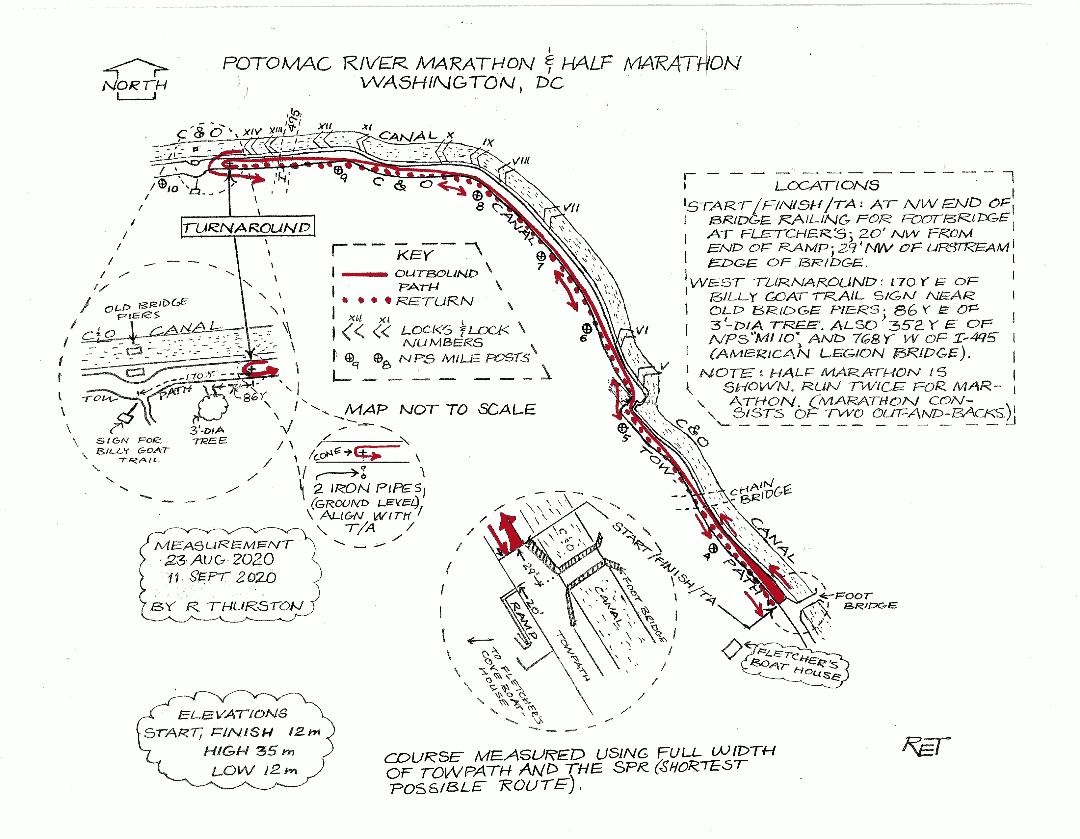 POTOMAC RIVER MARATHON & HALF MARATHON
WASHINGTON, DC
NORTH
C & O
XIV
XIII
495
XII
XI
CANAL
X
IX
VIII
10
9
C & O
8
CANAL
VII
7
6
VI
V
5
C&O
TOW
CHAIN
BRIDGE
CANAL
4
PATH
FOOT
BRIDGE
FLETCHER'S
BOAT HOUSE
START/FINISH/TA
TURNAROUND
KEY
OUTBOUND
PATH
RETURN
XII XI
LOCKS & LOCK
NUMBERS
9 8 NPS MILE POSTS
MAP NOT TO SCALE
LOCATIONS
START/FINISH/TA: AT NW END OF
BRIDGE RAILING FOR FOOTBRIDGE
AT FLETCHER'S; 20' NW FROM
END OF RAMP; 29' NW OF UPSTREAM
EDGE OF BRIDGE.
WEST TURNAROUND: 170 Y E OF
BILLY GOAT TRAIL SIGN NEAR
OLD BRIDGE PIERS; 86 Y E OF
3'-DIA TREE. ALSO 352 Y E OF
NPS "MI 10", AND 768 Y W OF I-495
(AMERICAN LEGION BRIDGE).
NOTE: HALF MARATHON IS
SHOWN. RUN TWICE FOR MAR-
ATHON. (MARATHON CON-
SISTS OF TWO OUT-AND-BACKS)
OLD BRIDGE
PIERS
C&O CANAL
170 Y
TOW PATH
86Y
3'-DIA
TREE
SIGN FOR
BILLY GOAT
TRAIL
CONE
2 IRON PIPES
(GROUND LEVEL)
ALIGN WITH
T/A
C&O
29'
20'
RAMP
FOOT BRIDGE
CANAL
TOWPATH
TO FLETCHER'S
COVE BOAT-
HOUSE
MEASUREMENT
23 AUG 2020
11 SEPT 2020
BY R THURSTON
ELEVATIONS
START, FINISH 12 m
HIGH 35 m
LOW 12 m
COURSE MEASURED USING FULL WIDTH
OF TOWPATH AND THE SPR (SHORTEST
POSSIBLE ROUTE).
RET